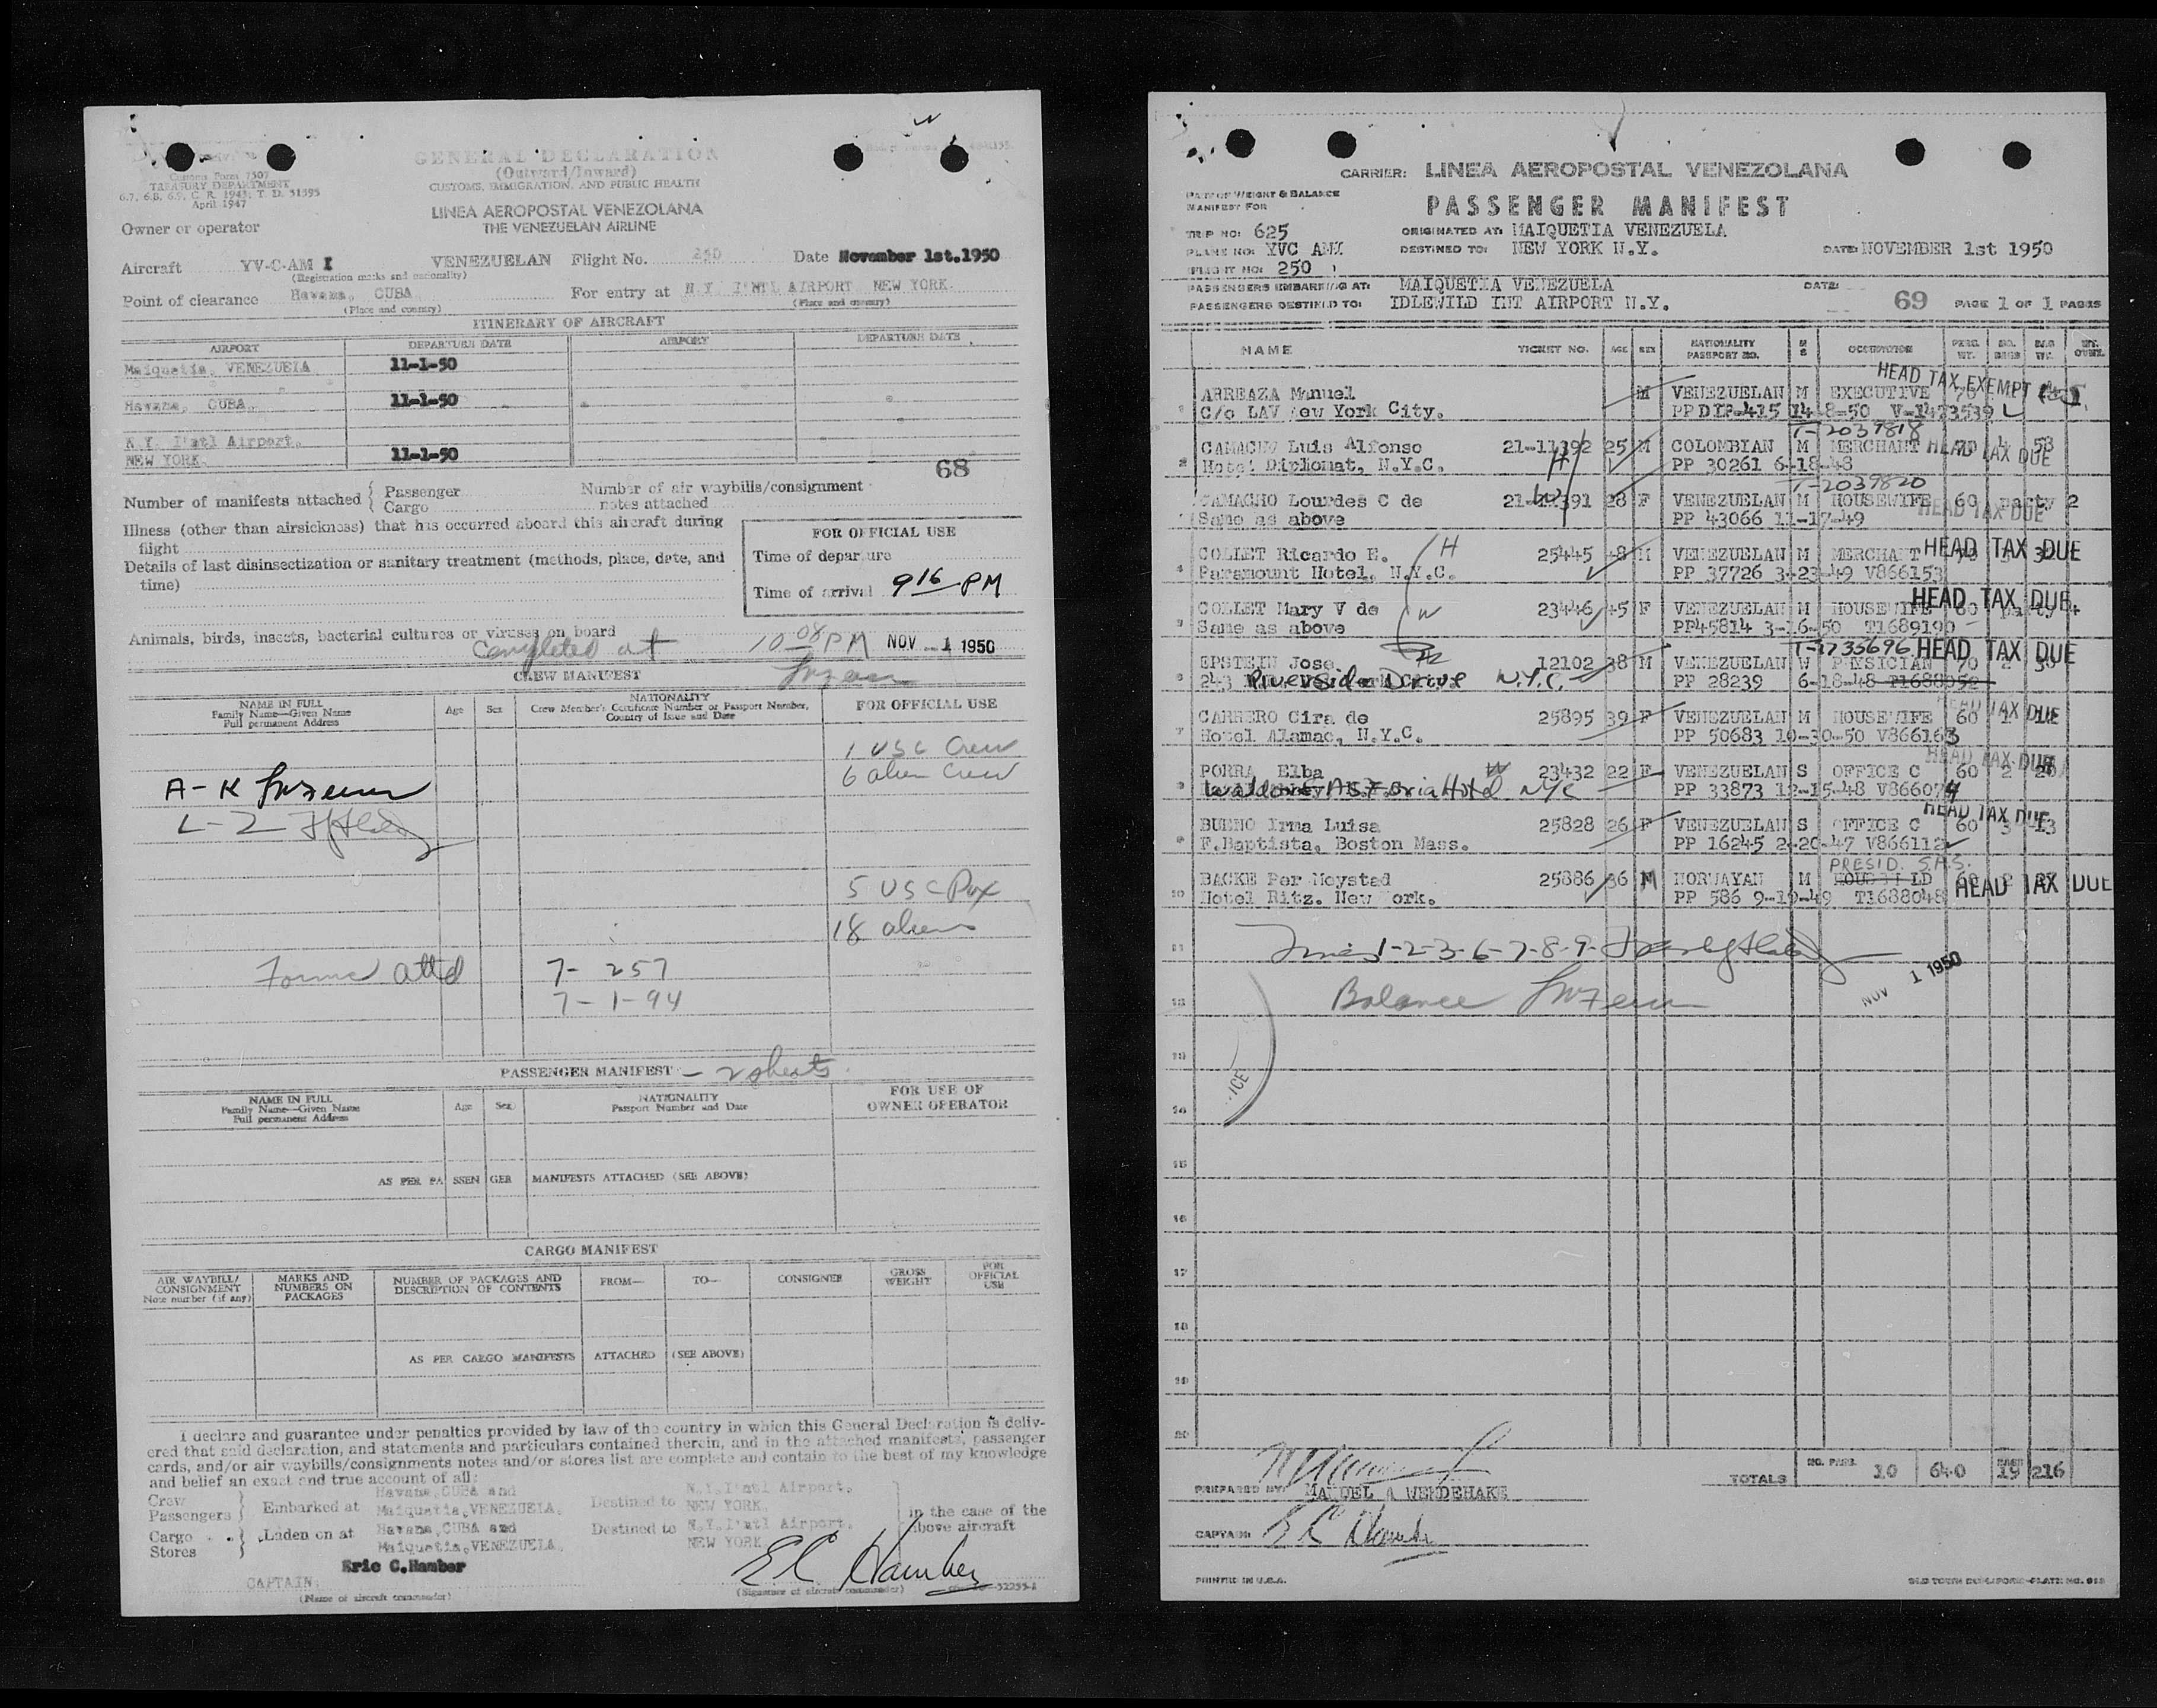 Customs Form 7507
TREASURY DEPARTMENT
6.7, 6.8, 6.9, C. R. 1943; T. D. 51595
April 1947
GENERAL DECLARATION
(Outward/Inward)
CUSTOMS, IMMIGRATION, AND PUBLIC HEALTH
LINEA AEROPOSTAL VENEZOLANA
THE VENEZUELAN AIRLINE
Owner or operator
Aircraft YV-C-AM I VENEZUELAN Flight No. 250 Date November 1st.1950
(Registration marks and nationality)
Point of clearance Havana, CUBA For entry at N.Y. I'NTL AIRPORT NEW YORK.
(Place and country) (Place and country)
ITINERARY OF AIRCRAFT
AIRPORT DEPARTURE DATE AIRPORT DEPARTURE DATE
Maiquetia, VENEZUELA 11-1-50
Havana, CUBA. 11-1-50
N.Y. I'ntl Airport.
NEW YORK. 11-1-50
68
Number of manifests attached { Passenger Number of air waybills/consignment
Cargo notes attached
Illness (other than airsickness) that has occurred aboard this aircraft during
flight
Details of last disinsectization or sanitary treatment (methods, place, date, and
time)
FOR OFFICIAL USE
Time of departure
Time of arrival 9 16 PM
Animals, birds, insects, bacterial cultures or viruses on board
Completed at 10 08 PM NOV - 1 1950
CREW MANIFEST
NAME IN FULL
Family Name—Given Name
Full permanent Address
Age Sex
NATIONALITY
Crew Member's Certificate Number or Passport Number,
Country of Issue and Date
FOR OFFICIAL USE
1 USC Crew
6 alien Crew
A-K
L-Z
5 USC Pax
18 aliens
Forms attd 7- 257
7-1-94
PASSENGER MANIFEST - 2 sheets
NAME IN FULL
Family Name—Given Name
Full permanent Address
Age Sex
NATIONALITY
Passport Number and Date
FOR USE OF
OWNER OPERATOR
AS PER PASSENGER MANIFESTS ATTACHED (SEE ABOVE)
CARGO MANIFEST
AIR WAYBILL/
CONSIGNMENT
Note number (if any)
MARKS AND
NUMBERS ON
PACKAGES
NUMBER OF PACKAGES AND
DESCRIPTION OF CONTENTS
FROM— TO— CONSIGNEE
GROSS
WEIGHT
FOR
OFFICIAL
USE
AS PER CARGO MANIFESTS ATTACHED (SEE ABOVE)
I declare and guarantee under penalties provided by law of the country in which this General Declaration is deliv-
ered that said declaration, and statements and particulars contained therein, and in the attached manifests, passenger
cards, and/or air waybills/consignments notes and/or stores list are complete and contain to the best of my knowledge
and belief an exact and true account of all:
Crew
Passengers } Embarked at Havana, CUBA and
Maiquetia, VENEZUELA. Destined to N.Y.I'ntl Airport.
NEW YORK.
Cargo
Stores } Laden on at Havana, CUBA and
Maiquetia, VENEZUELA. Destined to N.Y.I'ntl Airport.
NEW YORK
in the case of the
above aircraft
Eric C.Hamber
CAPTAIN
(Name of aircraft commander)
E C Hamber
(Signature of aircraft commander)
CARRIER: LINEA AEROPOSTAL VENEZOLANA
PART OF WEIGHT & BALANCE
MANIFEST FOR
PASSENGER MANIFEST
TRIP NO: 625 ORIGINATED AT: MAIQUETIA VENEZUELA
PLANE NO: YVC AMI DESTINED TO: NEW YORK N.Y. DATE: NOVEMBER 1st 1950
FLIGHT NO: 250
PASSENGERS EMBARKING AT: MAIQUETIA VENEZUELA DATE:
PASSENGERS DESTINED TO: IDLEWILD INT AIRPORT N.Y. 69 PAGE 1 OF 1 PAGES
NAME TICKET NO. AGE SEX NATIONALITY PASSPORT NO. M S OCCUPATION PERS. WT. NO. BAGS BAG WT.
1 ARREAZA Manuel M VENEZUELAN M EXECUTIVE 70 HEAD TAX EXEMPT
C/o LAV New York City. PP DIP-415 14-8-50 V-1473539
T-2039818
2 CAMACHO Luis Alfonso 21-11392 25 M COLOMBIAN M MERCHANT HEAD TAX DUE 53
Hotel Diplomat, N.Y.C. H PP 30261 6-18-48
T-2039820
CAMACHO Lourdes C de 28 F VENEZUELAN M HOUSEWIFE 60 party 2
Same as above W PP 43066 11-17-49 HEAD TAX DUE
4 COLLET Ricardo E. H 25445 48 M VENEZUELAN M MERCHANT HEAD TAX DUE
Paramount Hotel, N.Y.C. PP 37726 3-23-49 V866153
5 COLLET Mary V de W 23446 45 F VENEZUELAN M HOUSEWIFE 60 party 4 HEAD TAX DUE
Same as above PP45814 3-16-50 T1689190
T-1735696 HEAD TAX DUE
6 EPSTEIN Jose 12102 38 M VENEZUELAN W PHYSICIAN 70
243 Riverside Drive N.Y.C. PP 28239 6-18-48
7 CARRERO Cira de 25895 39 F VENEZUELAN M HOUSEWIFE 60 HEAD TAX DUE
Hotel Alamac, N.Y.C. PP 50683 10-30-50 V866163
PORRA Elba 23432 22 F VENEZUELAN S OFFICE C 60 2 HEAD TAX DUE
Waldorf Astoria Hotel NYC PP 33873 12-15-48 V866074
9 BUENO Irma Luisa 25828 26 F VENEZUELAN S OFFICE C 60 3 HEAD TAX DUE
F.Baptista, Boston Mass. PP 16245 2-20-47 V866112
PRESID. S.A.S.
10 BACKE Per Moystad 25886 36 M NORWAYAN M HEAD TAX DUE
Hotel Ritz. New York. PP 586 9-19-49 T1688048
11 Lines 1-2-3-6-7-8-9-
NOV 1 1950
12 Balance
13
14
15
16
17
18
19
20
TOTALS NO. PASS. 10 640 BAGS 19 216
PREPARED BY: MANUEL A WENDEHAKE
CAPTAIN: E C Hamber
PRINTED IN U.S.A.